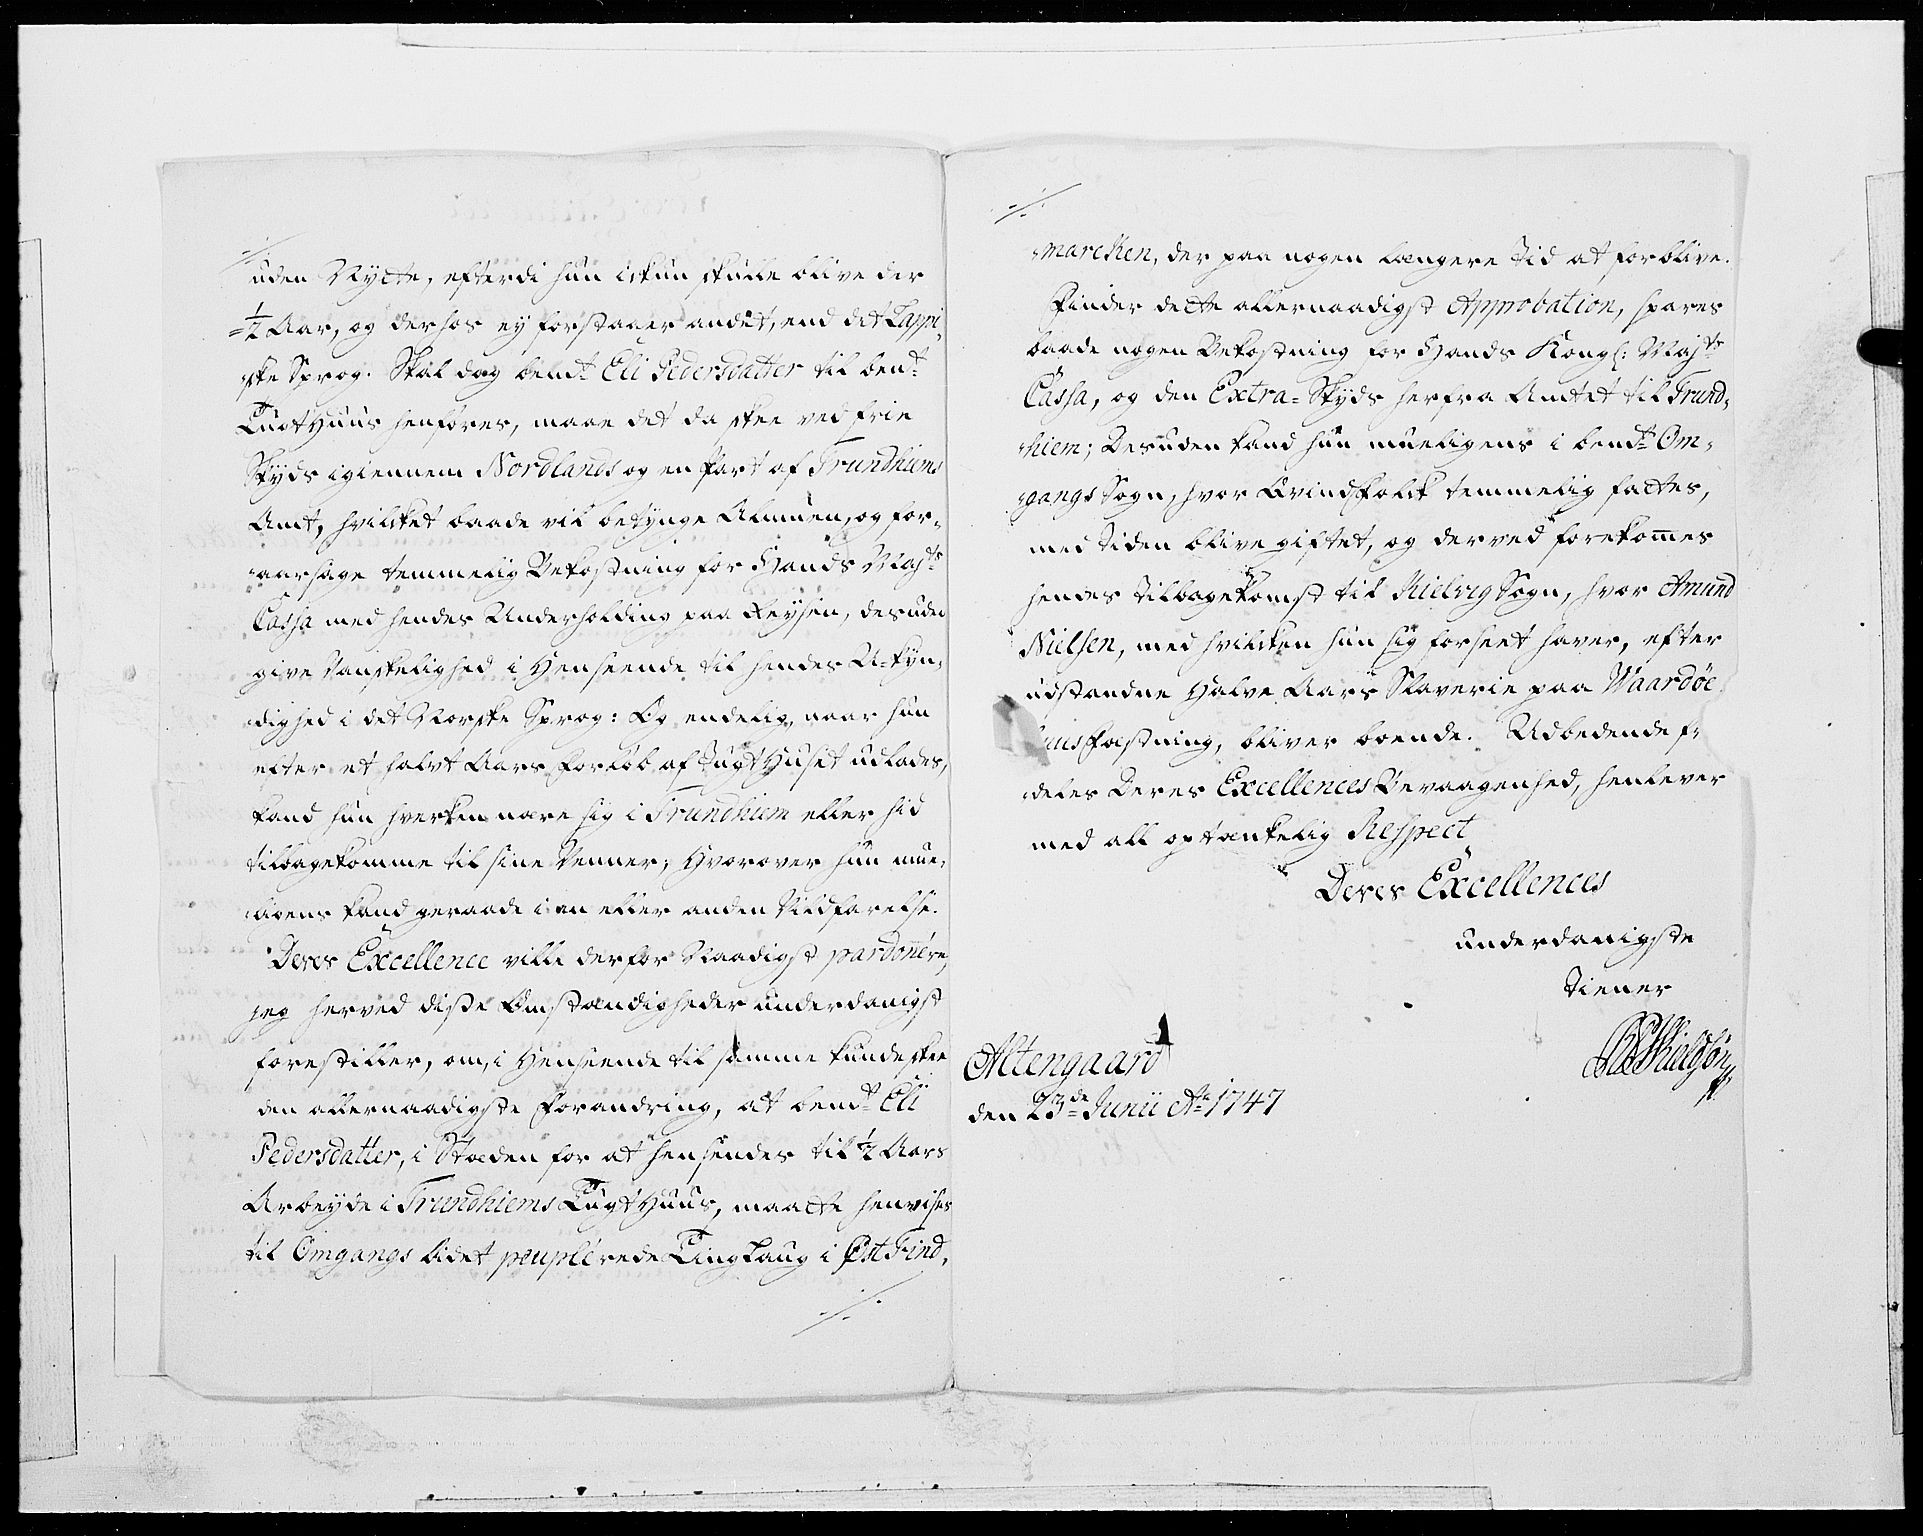 uden Nytte, efterdi hun ickun skulle blive der
=1/2 Aar, og derhos ey forstaaer andet, end det Lappi-
ske Sprog. Skal dog bemt Eli Pedersdatter til bemt
Tugt Huus henføres, maae det da skee ved frie
Skyds igiennem Nordlands og en Part af Trundhiems
Amt, hvilcket baade vil betynge Almuen, og for-
aarsage temmelig Bekostning for Hands Majts
Cassa med hendes Underholding paa Reysen, desuden
give Vanskelighed i Henseende til hendes U-kyn-
dighed i det Norske Sprog: Og endelig, naar hun
efter et halvt Aars Forløb af Tugt Huset udlades,
kand hun hverken nære sig i Trundhiem eller hid
tilbagekomme til sine Venner; Hvorover hun mue-
ligens kand geraade i en eller anden Vildfarelse.
Deres Excellence ville derfor Naadigst pardonnére,
jeg herved disse Omstændigheder underdanigst
forestiller, om, i Henseende til samme kunde skee
den allernaadigste Forandring, at bemt Eli
Pedersdatter, i Stæden for at hensendes til 1/2 Aars
Arbeyde i Trundhiems Tugt Huus, maatte henvises
til Omgangs lidet peuplérede Tinglaug i Øst Find-
./.
./.
marcken, der paa nogen længere Tid at forblive.
Finder dette allernaadigst Approbation, spares
baade nogen Bekostning for Hands Kongl: Majts
Cassa, og den Extra-Skyds herfra Amtet til Trund-
hiem; Desuden kand hun mueligens i bemt Om-
gangs Sogn, hvor Qvindfolck temmelig fattes,
med Tiden blive giftet, og derved forekommes
hendes Tilbagekomst til Kielvig Sogn, hvor Amund
Nielsen, med hvilcken hun sig forseet haver, efter
udstandne Halve Aars Slaverie paa Waardøe
huus Fæstning, bliver boende. Udbedende fr
deles Deres Excellences Bevaagenhed, henlever
med all optænkelig Respect
Deres Excellences
underdanigste
Tiener
Altengaard
den 23de Junii Ao 1747